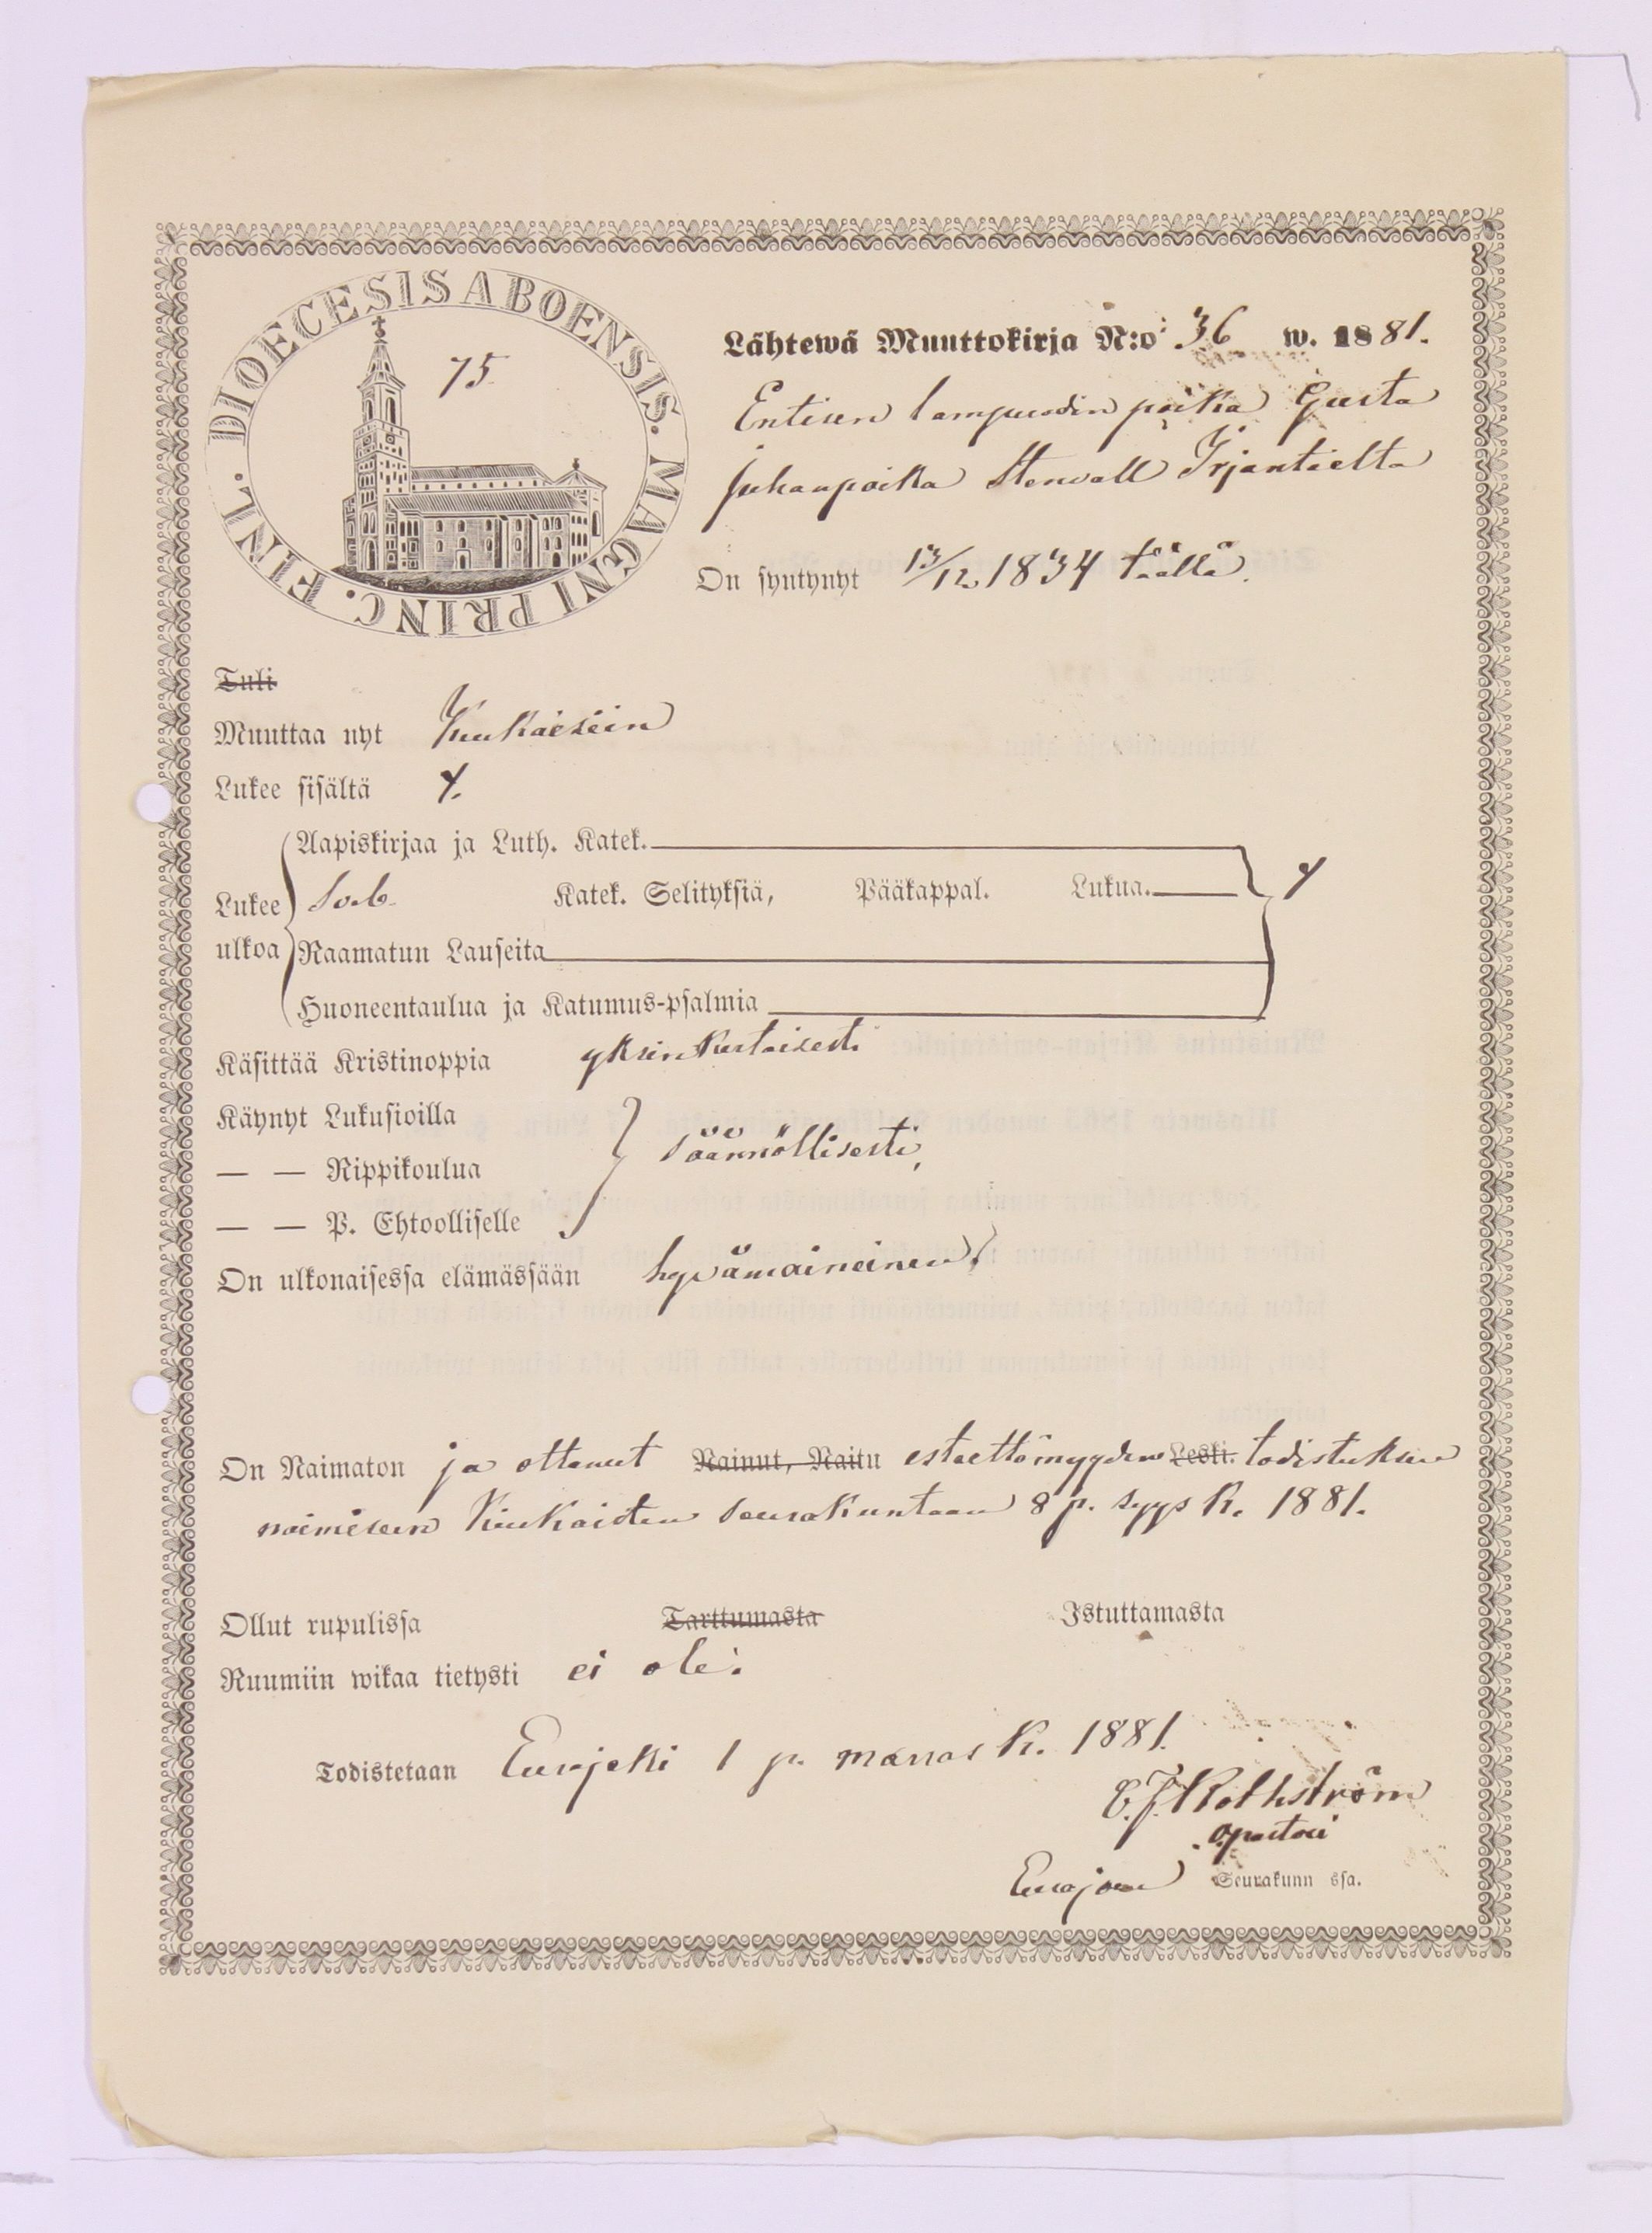 DIOECESIS ABOENSIS. MAGNI PRINC. FINL.
75
Lähtewä Muuttokirja N:o 36 w. 1881.
Entisen lampuodin poika Gusta
Juhanpoika Stenvall Irjantielta
On syntynyt 13/12 1834 täällä.
Tuli
Muuttaa nyt Kiukaisiin
Lukee sisältä
Aapiskirjaa ja Luth. Katek.
Lukee Katek. Selityksiä, Pääkappal. Lukua.
ulkoa Raamatun Lauseita
Huoneentaulua ja Katumus-psalmia
Käsittää Kristinoppia yksinkertaisesti
Käynyt Lukusioilla
— — Rippikoulua säännöllisesti,
— — P. Ehtoolliselle
On ulkonaisessa elämässään hyvämaineinen.
On Naimaton ja ottanut Nainut, Naitu esteettömyyden Leski. todistuksen
naimiseen Kiukaisten seurakuntaan 8 p. syys k. 1881.
Ollut rupulissa Tarttumasta Istuttamasta
Ruumiin wikaa tietysti ei ole.
Todistetaan Eurajoki 1 p. marras k. 1881.
Rothström
Eurajoen Seurakunn ssa.